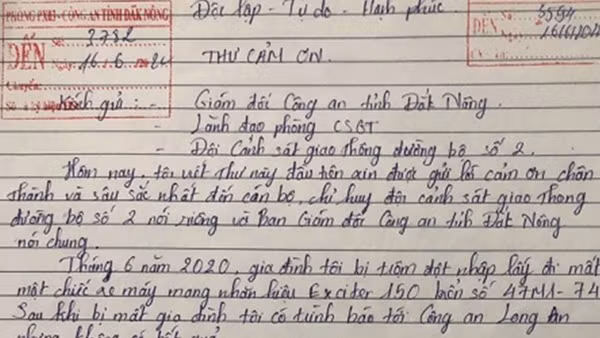 PHÒNG PX03 - CÔNG AN TỈNH ĐẮK NÔNG
ĐẾN
Số: 3782
Ngày: 16.6
Chuyển:
Độc lập - Tự do - Hạnh phúc
ĐẾN
THƯ CẢM ƠN.
Kính gửi: - Giám đốc Công an tỉnh Đắk Nông.
- Lãnh đạo phòng CSGT
- Đội Cảnh sát giao thông đường bộ số 2.
Hôm nay, tôi viết thư này đầu tiên xin được gửi lời cảm ơn chân
thành và sâu sắc nhất đến cán bộ, chỉ huy đội cảnh sát giao thông
đường bộ số 2 nói riêng và Ban Giám đốc Công an tỉnh Đắk Nông
nói chung.
Tháng 6 năm 2020, gia đình tôi bị trộm đột nhập lấy đi mất
một chiếc xe máy mang nhãn hiệu Exciter 150 biển số 47M1-74
Sau khi bị mất gia đình tôi có trình báo tới Công an Long An
nhưng không có kết quả